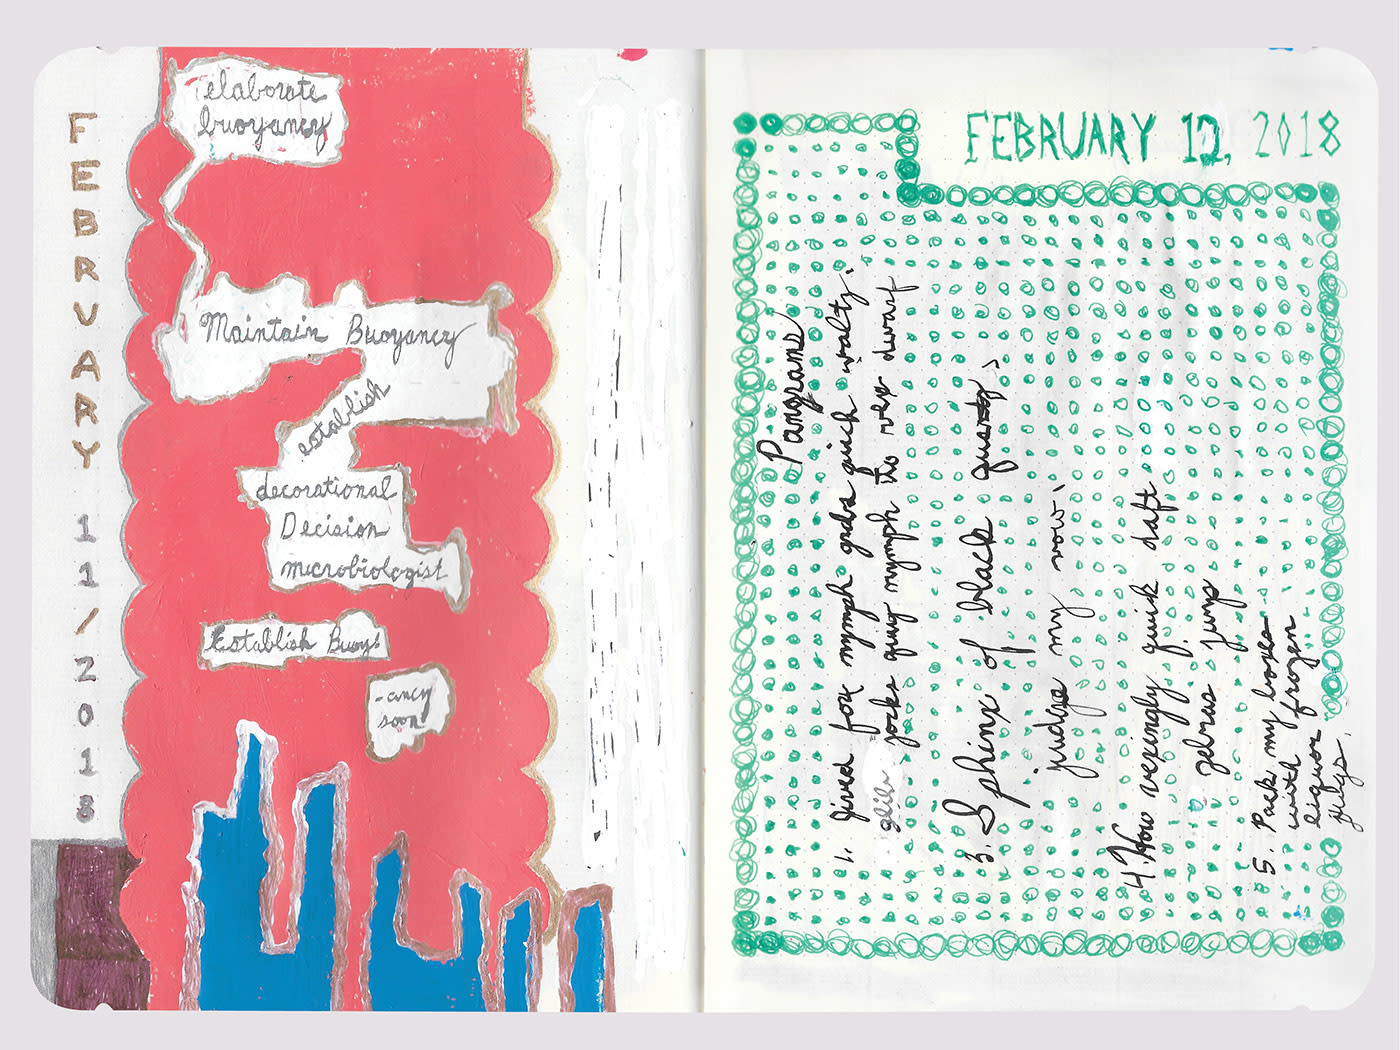 FEBRUARY 11/2018
elaborate
buoyancy
Maintain Buoyancy
establish
decorational
Decision
microbiologist
Establish Buoy-
-ancy
soon
FEBRUARY 12, 2018
Pangrams
1. jived fox nymph grabs quick waltz.
glib jocks quiz nymph to vex dwarf
3. Sphinx of black quartz,
judge my vow.
4. How vexingly quick daft
zebras jump
5. Pack my boxes
with frozen
liquor
julys.